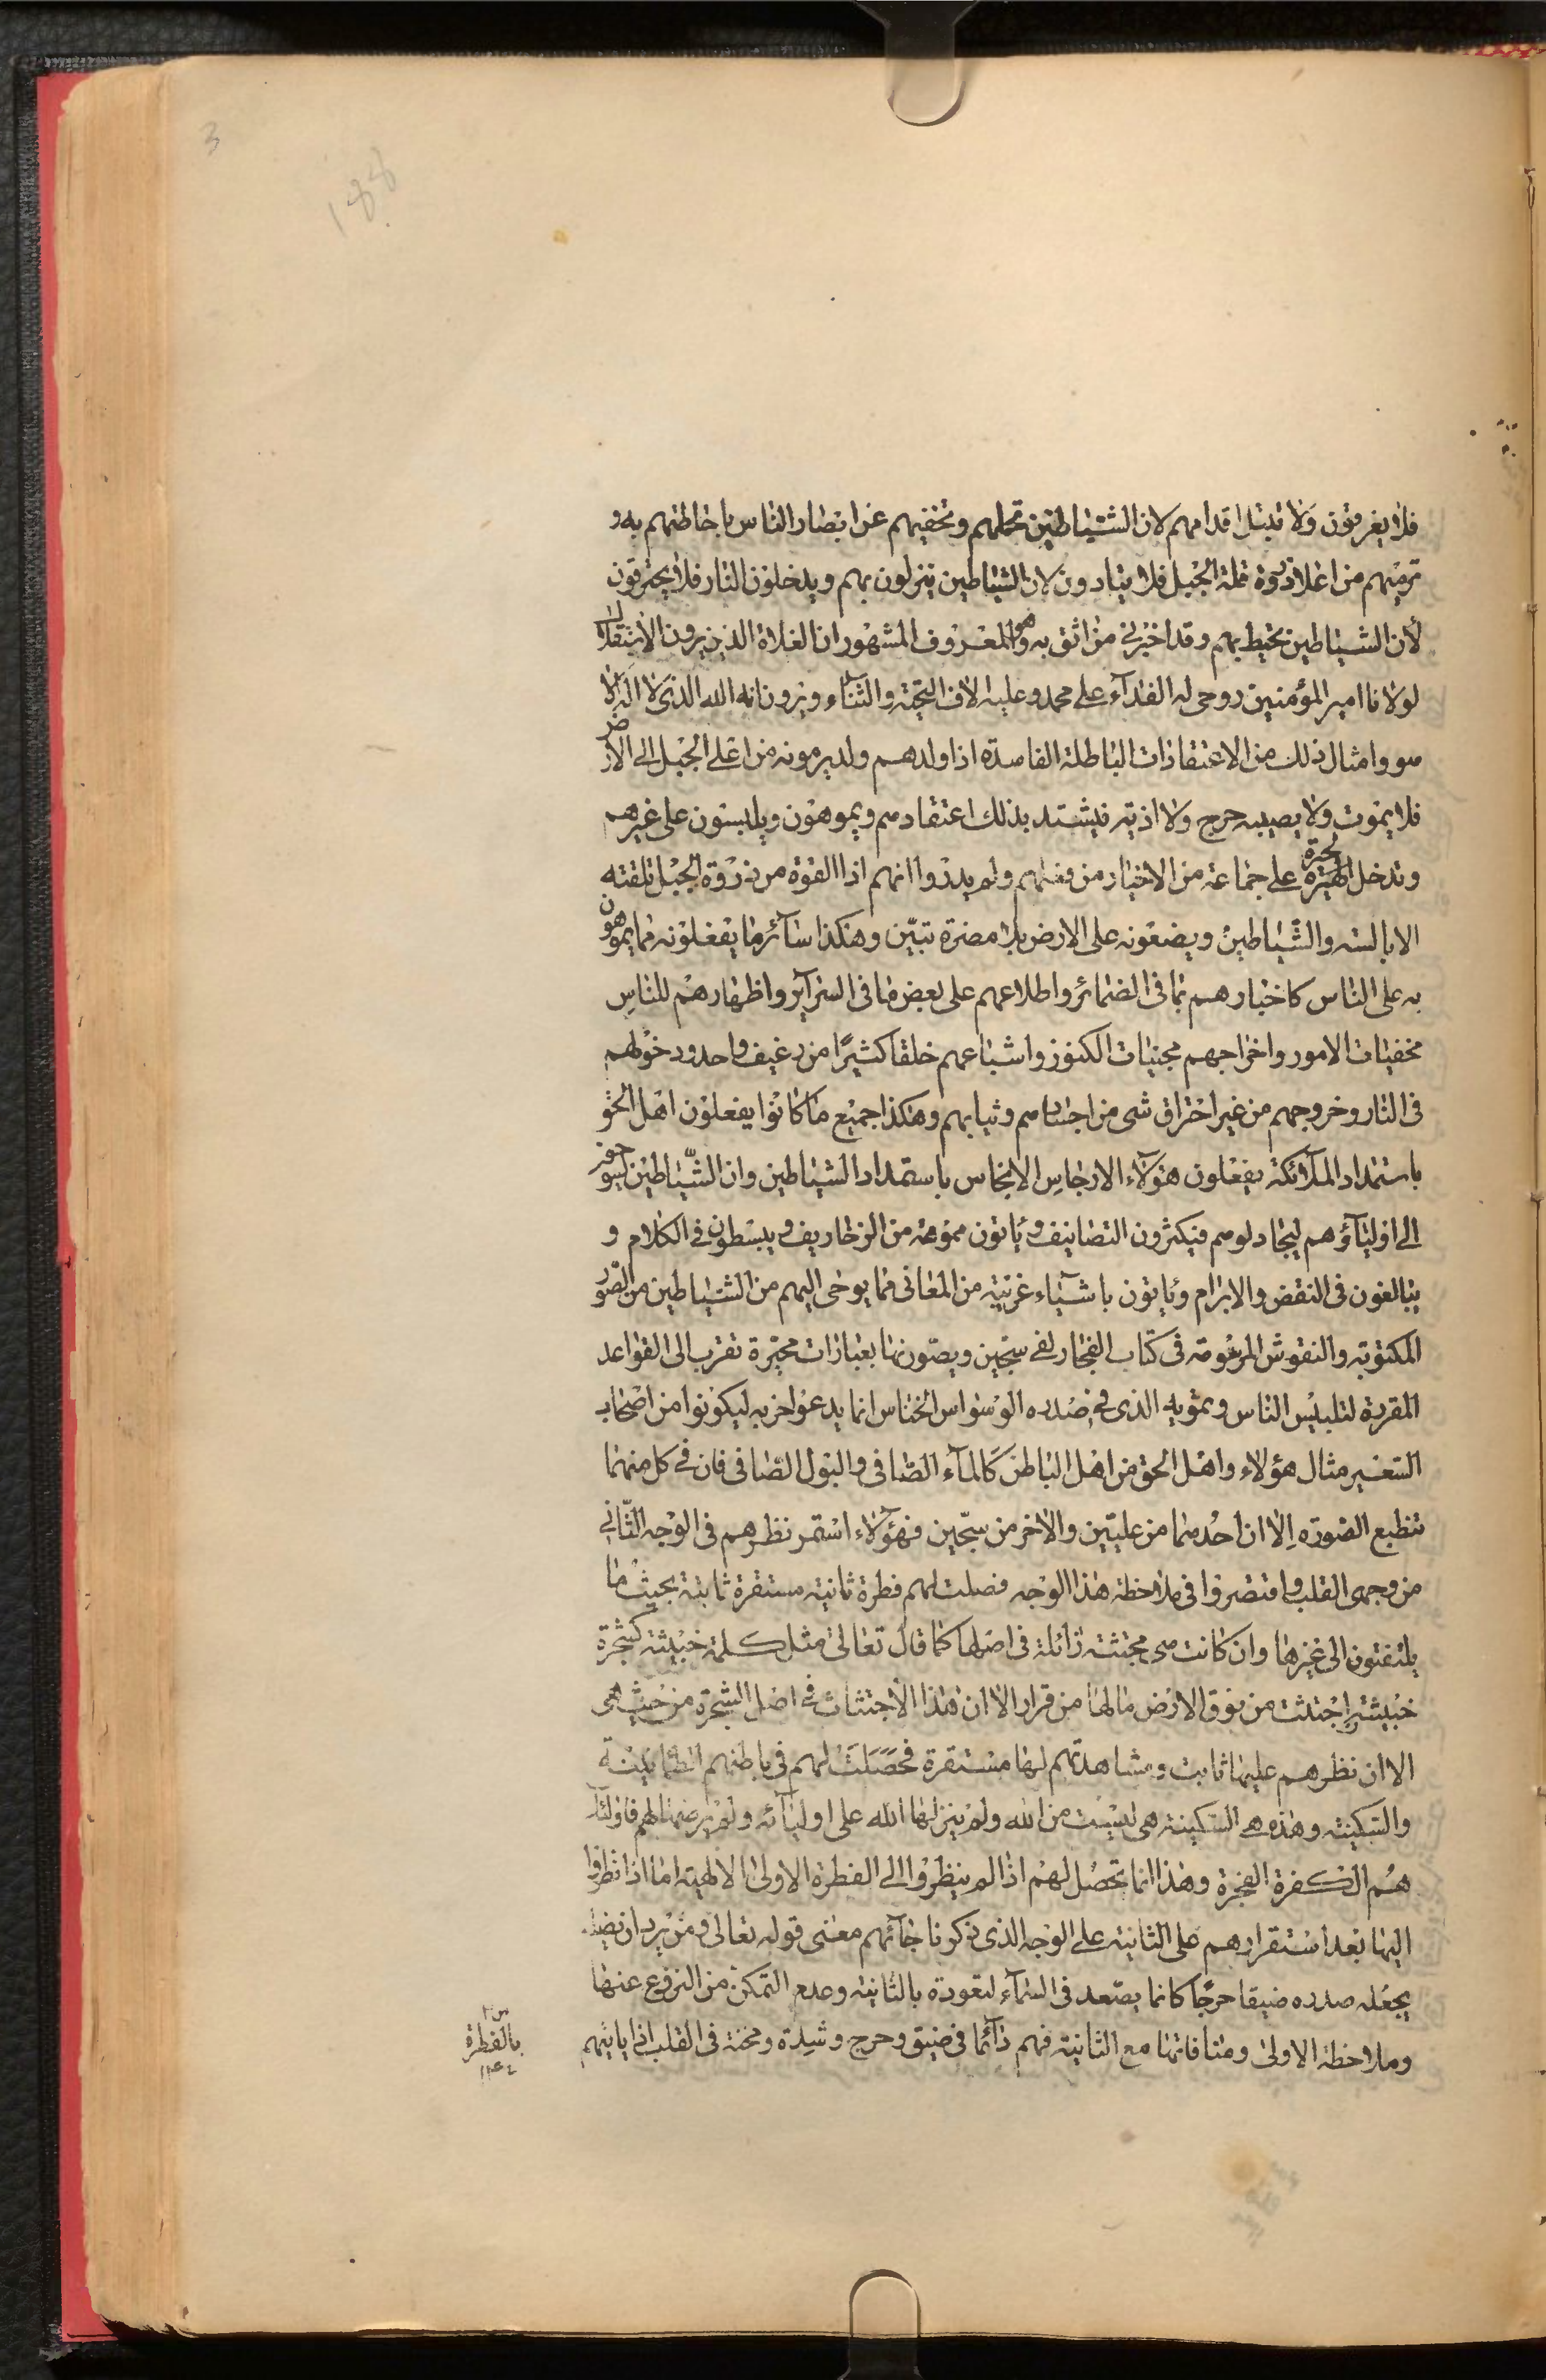 3
188
فلا يغرقون ولا تبتل اقدامهم لان الشياطين تحملهم وتخفيهم عن ابصار الناس باحاطتهم به و
ترميهم من اعلا ذروة قلة الجبل فلا يتادون لان الشياطين ينزلون بهم ويدخلون النار فلا يحترقون
لأن الشياطين تحيط بهم وقد اخبرني من اثق به وهو المعروف المشهور ان الغلاة الذين يرون
لولانا امير المؤمنين روحي له الفداء على محمد وعليه الاف التحية والثناء ويرون انه الله الذي لا اله الا
هو وامثال ذلك من الاعتقادات الباطلة الفاسدة اذا ولد لهم ولد يرمونه من اعلى الجبل الى الأرض
فلا يموت ولا يصيبه حرج ولا اذية فيشتد بذلك اعتقادهم ويموهون ويلبسون على غيرهم
وتدخل الحيرة على جماعة من الاخيار من فعلهم ولم يدروا انهم اذا القوه من ذروة الجبل تلقته
الابالسة والشياطين ويضعونه على الارض بلا مضرة تبيّن وهكذا سآئر ما يفعلونه مما يموهون
به على الناس كاخبارهم بما فى الضمائر واطلاعهم على بعض ما فى السرآير واظهارهم للناس
مخفيات الامور واخراجهم مخبيات الكنوز واشباعهم خلقا كثيرًا من رغيف واحد ودخولهم
فى النار وخروجهم من غير احتراق شى من اجسامهم وثيابهم وهكذا جميع ما كانوا يفعلون اهل الحق
باستمداد الملآئكة يفعلون هؤلآء الارجاس الانجاس باستمداد الشياطين وان الشّياطين ليوحون
الى اوليآؤهم ليجادلوهم فيكثرون التصانيف وياتون مموهة من الزخاريف ويبسطون فى الكلام و
يبالغون فى النقض والابرام وياتون باشيآء غريبة من المعانى مما يوحى اليهم من الشياطين من الصور
المكتوبة والنقوش المرقومة فى كتاب الفجار لفى سجّين ويصّونها بعبارات محيّرة تقرب الى القواعد
المقررة لتلبيس الناس وتمويه الذى فى صدره الوسواس الخناس انما يدعو احزبه ليكونوا من اصحاب
السعير مثال هؤلاء واهل الحق من اهل الباطن كالمآء الصافى والبول الصافى فان فى كل منهما
تنطبع الصورة إلا ان احدهما من عليّين والاخر من سجّين فهؤلآء استمر نظرهم فى الوجه الثّانى
من وجهى القلب واقتصروا فى ملاحظة هذا الوجه فصلت لهم فطرة ثانية مستقرة ثابتة بحيث ما
يلتفتون الى غيرها وان كانت هى مجتثة زائلة فى اصلها كما قال تعالى مثل كلمة خبيثة كشجرة
خبيثة اجتثت من فوق الارض ما لها من قرار الا ان هذا الأجتثاث فى اصل الشجرة من حيث هى
الا ان نظرهم عليها ثابت ومشاهدتهم لها مستقرة فحصَلَتْ لهم فى باطنهم الطمانينة
والسكينة وهذه هى السكينة هى ليست من الله ولم ينزلها الله على اوليآئه ولم يرضها لهم فاولئك
هُم الكفرة الفجرة وهذا انما تحصُل لهم اذا لم ينظروا الى الفطرة الاولى الالهية اما اذا نظروا
اليها بعد استقرارهم على الثانية على الوجه الذى ذكرنا جآئهم معنى قوله تعالى ومن يرد ان يضله
يجعل صدره ضيقا حرجًا كانما يصّعد فى السّمآء لتعوده بالثانية وعدم التمكن من النزوع عنها
وملاحظة الاولى ومنافاتها مع الثانية فهم دآئما فى ضيق وحرج وشدة ومحنة فى القلب اذا ياتيهم
بالفطرة